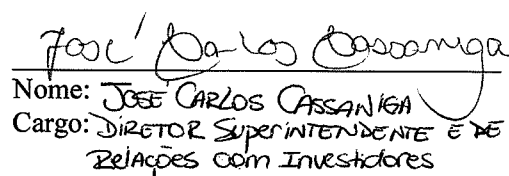 José Carlos Cassaniga
Nome: JOSÉ CARLOS CASSANIGA
Cargo: DIRETOR SUPERINTENDENTE E DE
RELAÇÕES COM INVESTIDORES